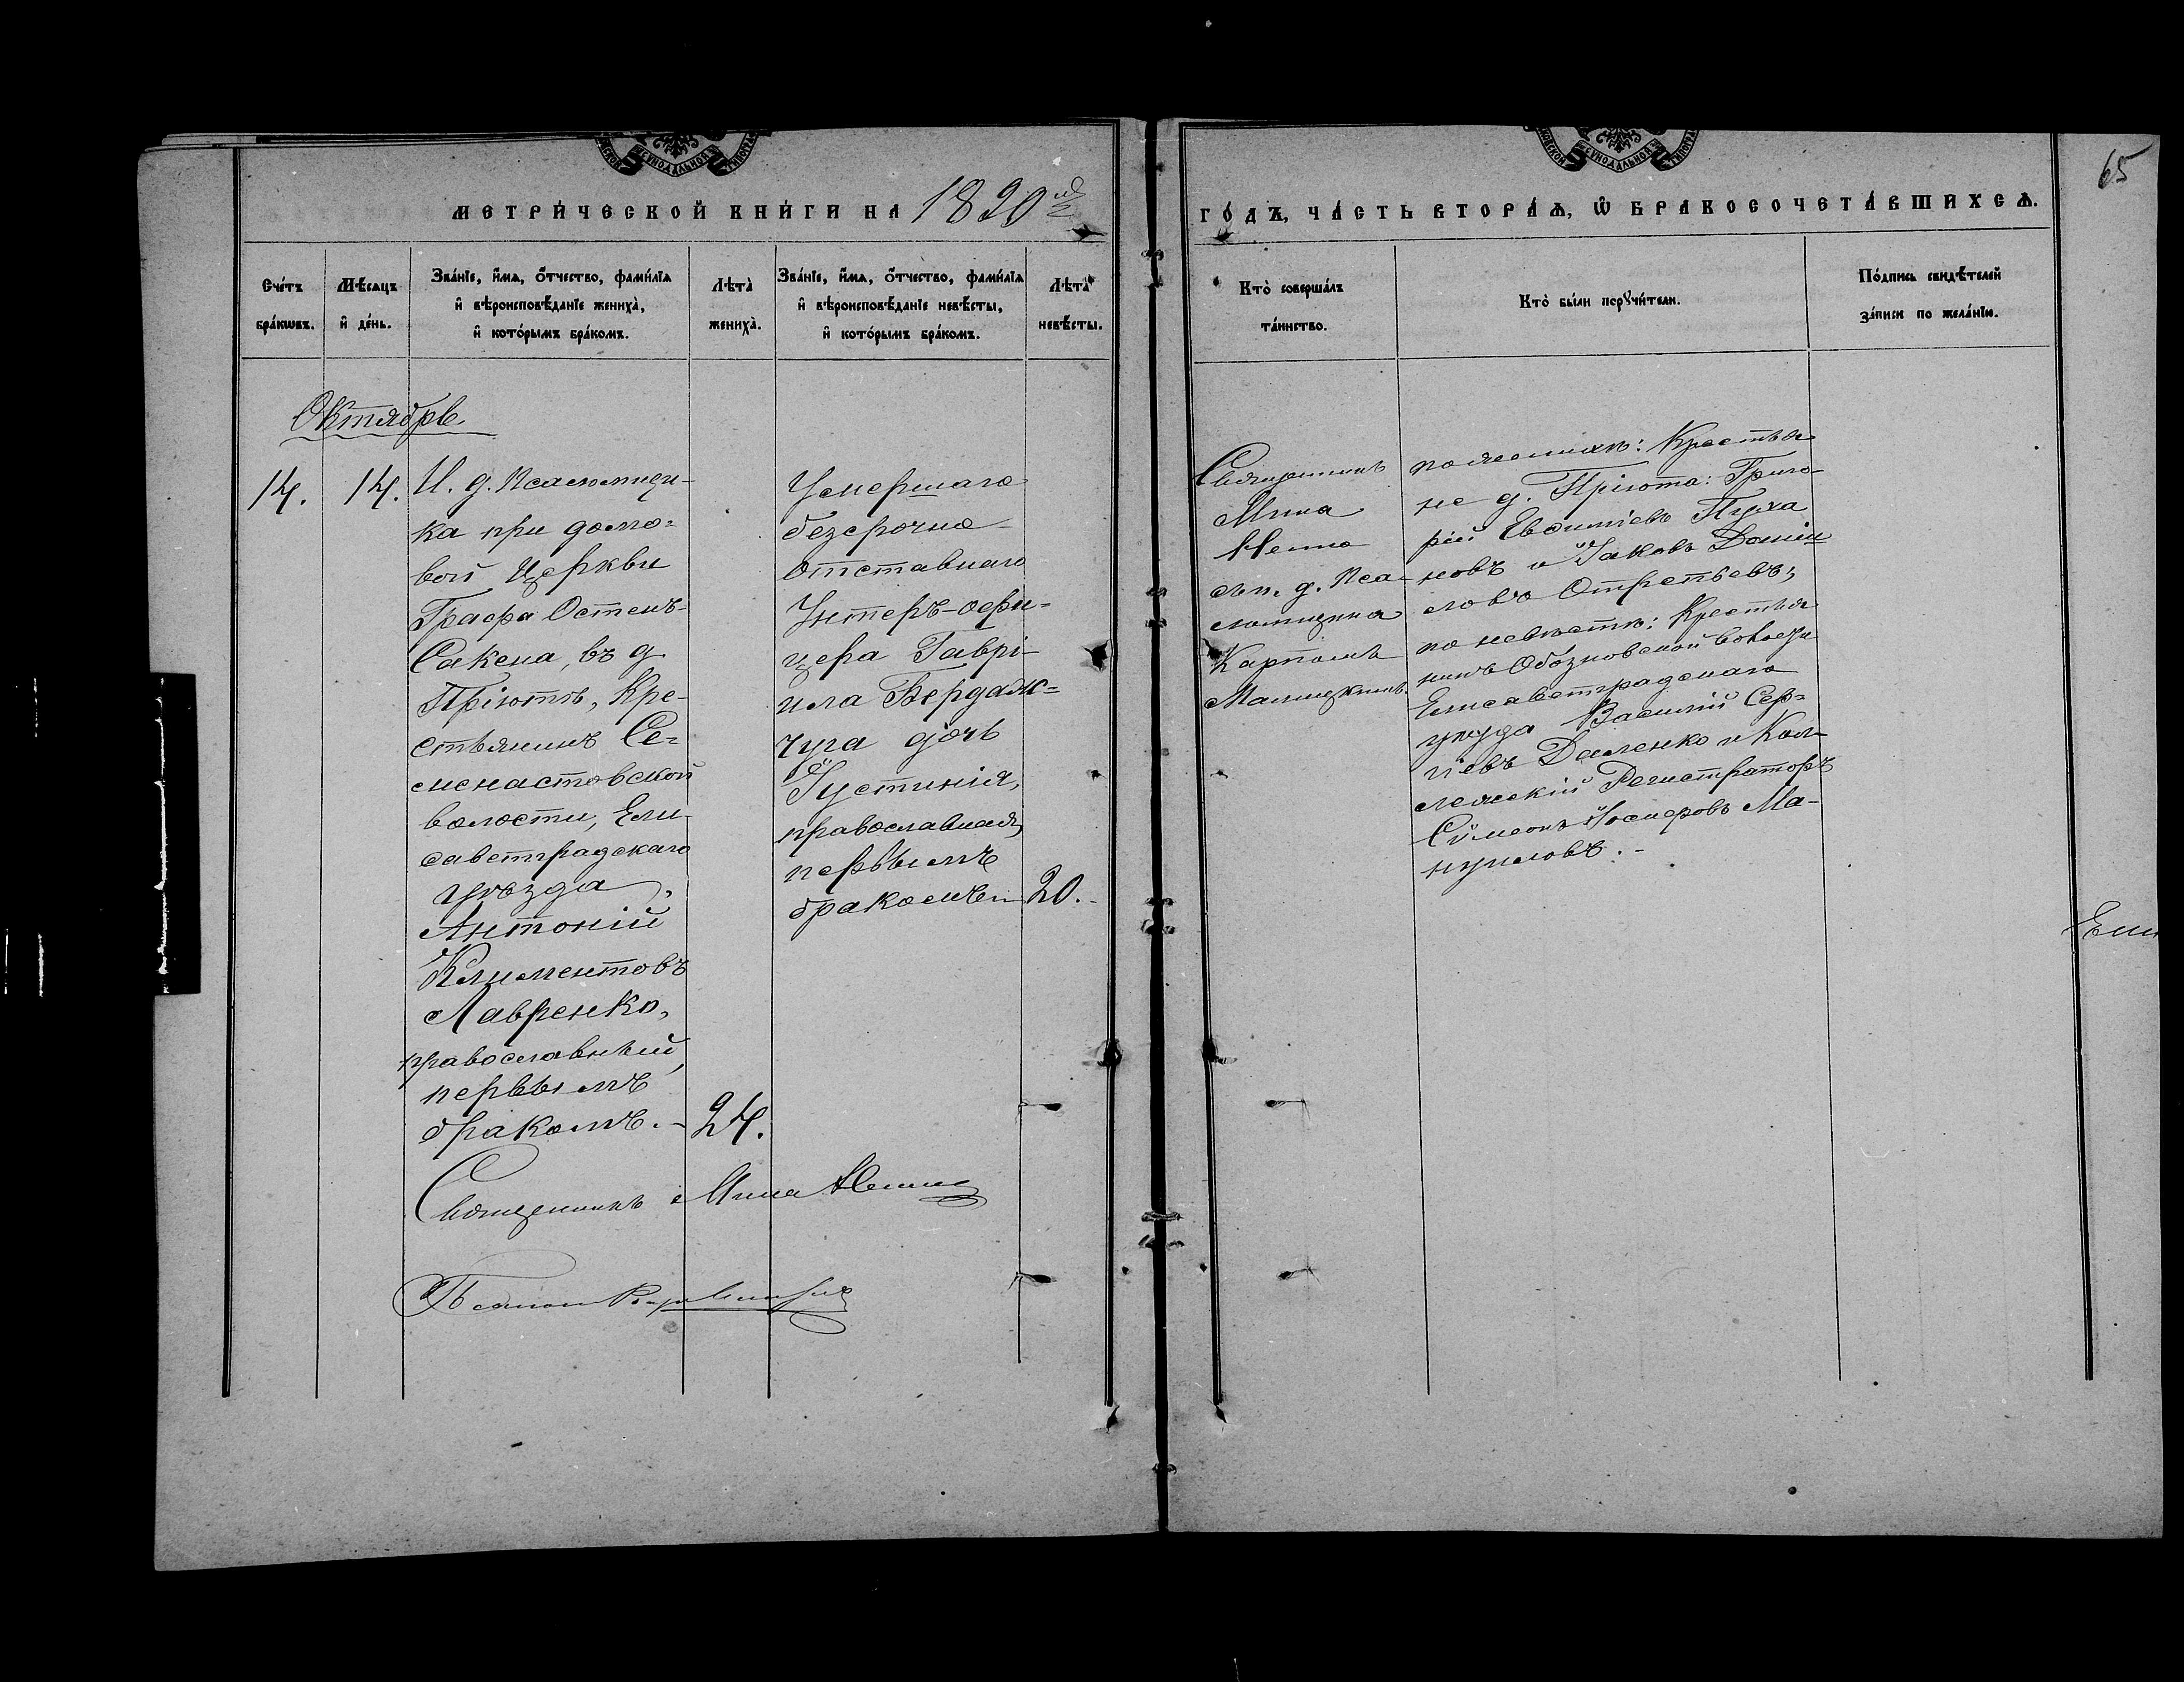 65
МЕТРИ́ЧЕСКОЙ КНИ́ГИ НА 1890 й
ГО́ДЪ, ЧА́СТЬ ВТОРА́Ѧ, Ѡ҆ БРАКОСОЧЕТА́ВШИХСѦ.
Сче́тъ бра́кѡвъ.
Мѣ́сѧцъ и҆ де́нь.
Зва́нїе, и҆́мѧ, ѻ҆́тчество, фами́лїѧ
и҆ вѣроисповѣ́данїе жениха̀,
и҆ кото́рымъ бра́комъ.
Лѣта̀ жениха̀.
Зва́нїе, и҆́мѧ, ѻ҆́тчество, фами́лїѧ
и҆ вѣроисповѣ́данїе невѣ́сты,
и҆ кото́рымъ бра́комъ.
Лѣта̀ невѣ́сты.
Кто̀ соверша́лъ
та́инство.
Кто̀ бы́ли порꙋчи́тели.
По́дпись свидѣ́телей
за́писи по жела́нїю.
Октябрь
14.
14.
И. д. Псаломщи-
ка при домо-
вой Церкви
Графа Остенъ-
Сакена, въ д.
Пріютѣ, Кре-
стьянинъ Се-
менастовской
волости, Ели-
саветградскаго
уѣзда,
Антоній
Климентовъ
Лавренко,
православный,
первымъ
бракомъ.-
24.
Умершаго
безсрочно-
отставнаго
Унтеръ-офи-
цера Гаврі-
ила Бердаж-
чуга дочь
Іустинія,
православная,
первымъ
бракомъ
20.-
Священникъ
Мина
съ и. д. Пса-
ломщика
Карпомъ
по женихѣ: Крестья-
не д. Пріюта: Григо-
рій Евѳиміевъ Пуха
новъ и Іаковъ Даніи
ловъ
по невѣстѣ: Крестья
нинъ Обозновской волости
Елисаветградскаго
уѣзда Василій Сер-
гіевъ Даленко и Кол-
лежскій Регистраторъ
Сѵмеонъ Іосифовъ Ма-
нуиловъ.-
Священникъ Мина
Ели